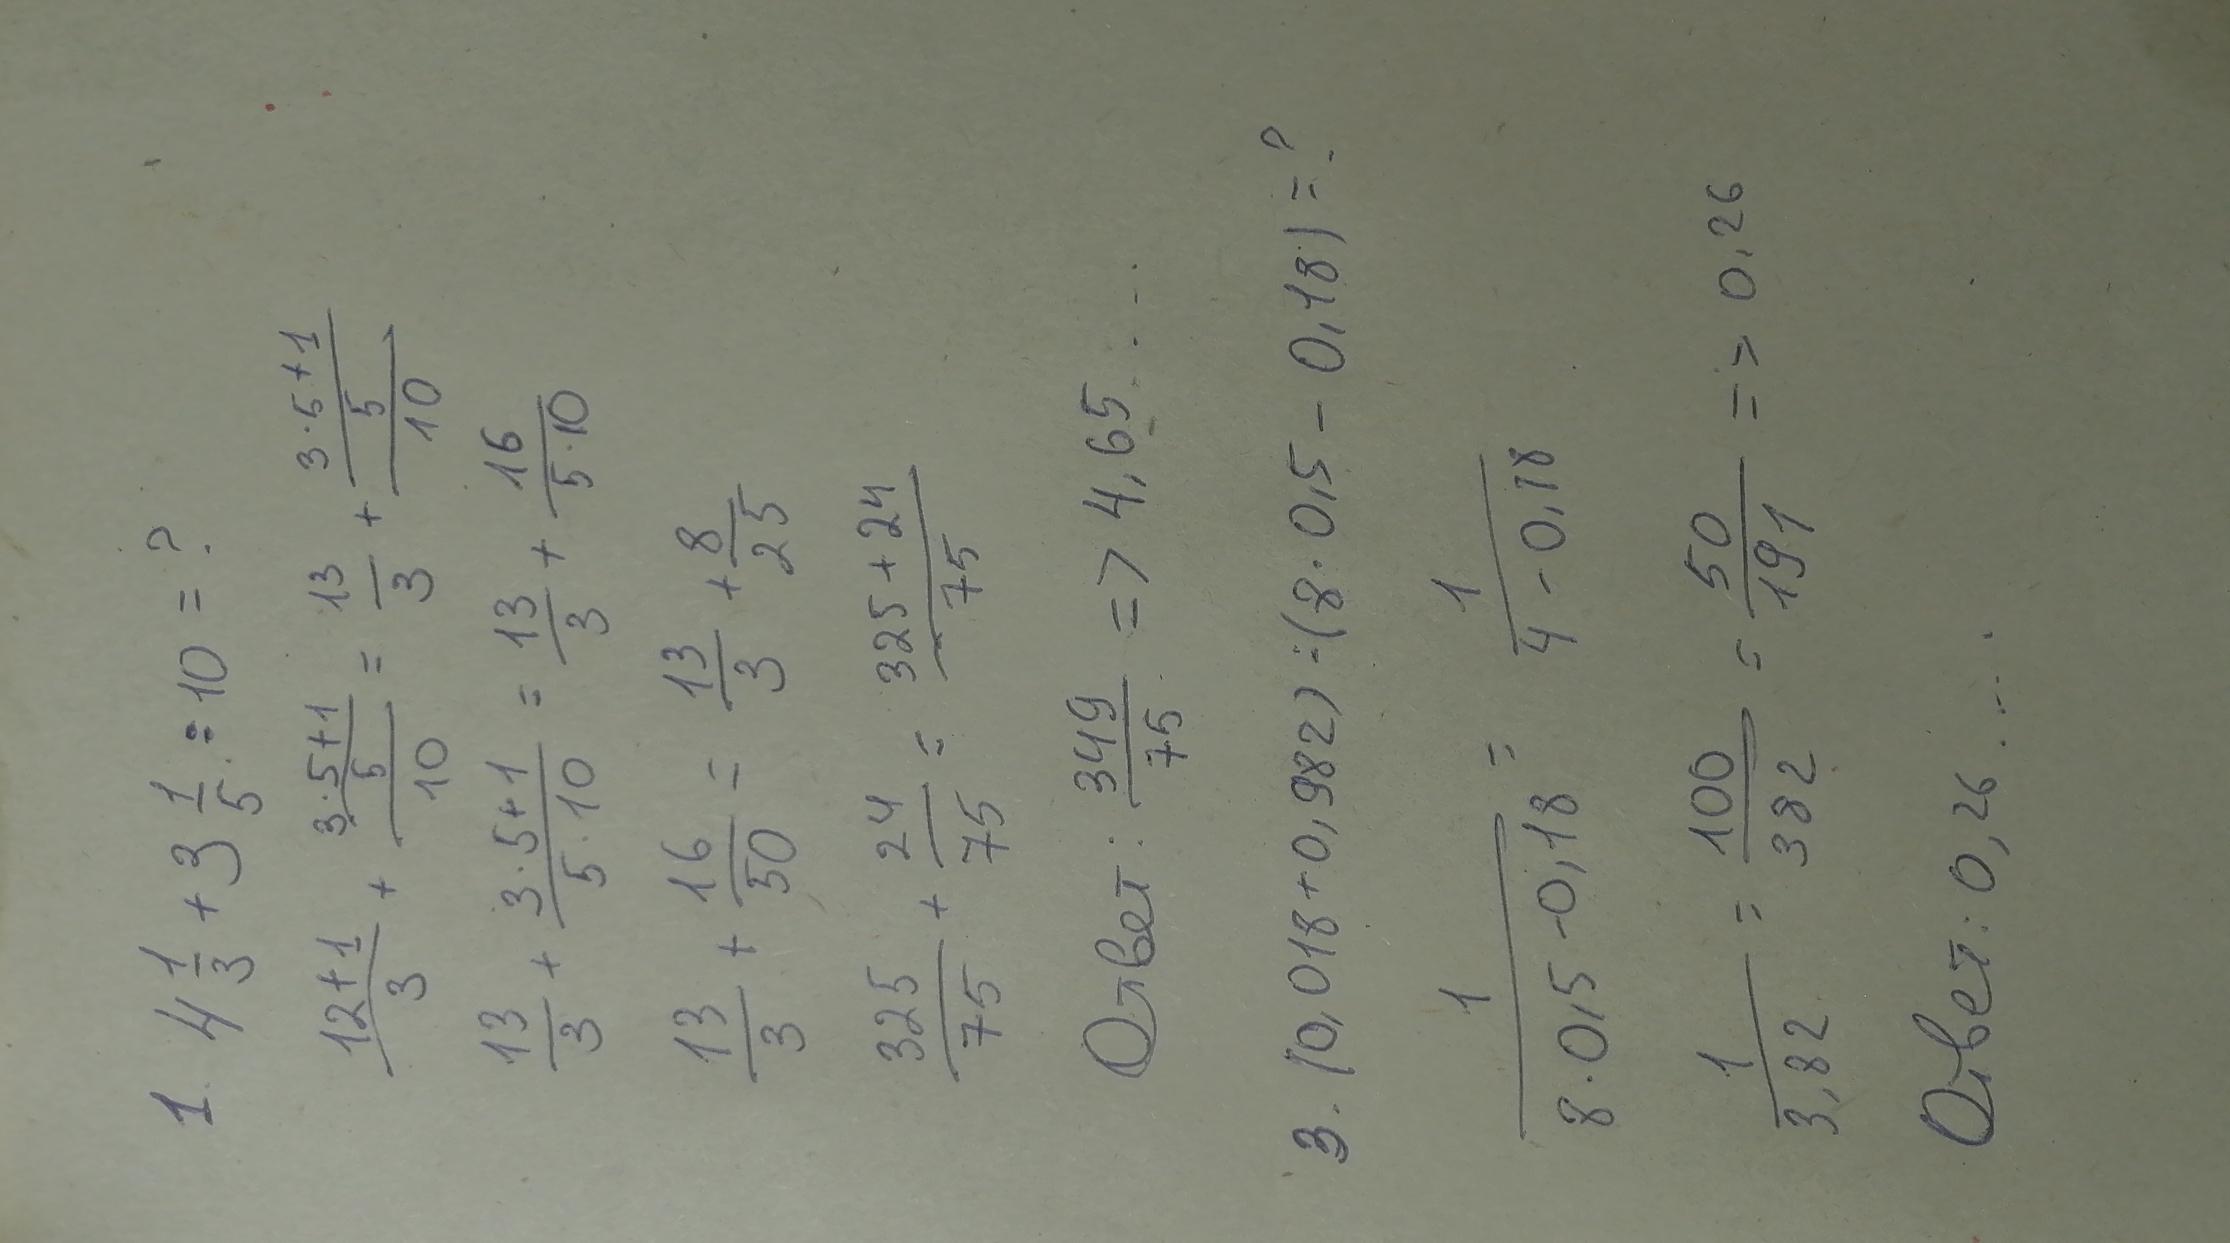 1. 4 1/3 + 3 1/5 : 10 = ?
(12+1)/3 + ((3·5+1)/5)/10 = 13/3 + ((3·5+1)/5)/10
13/3 + (3·5+1)/(5·10) = 13/3 + 16/(5·10)
13/3 + 16/50 = 13/3 + 8/25
325/75 + 24/75 = (325+24)/75
Ответ: 349/75 => 4,65....
3. (0,018+0,982):(8·0,5-0,18)=?
1/(8·0,5-0,18) = 1/(4-0,18)
1/3,82 = 100/382 = 50/191 => 0,26
Ответ: 0,26....